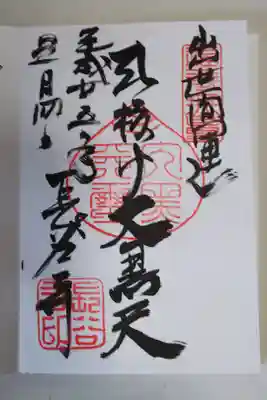 出世開運
授け大黒天
平成廿五年
五月四日
長谷寺
長谷寺印